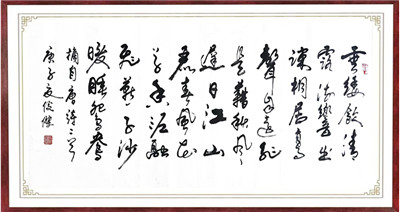 垂緌飲清
露流響出
疎桐居高
聲自遠非
是藉秋風
遲日江山
麗春風花
草香泥融
飛燕子沙
暖睡鴛鴦
摘自唐詩二首
庚子夏俊傑